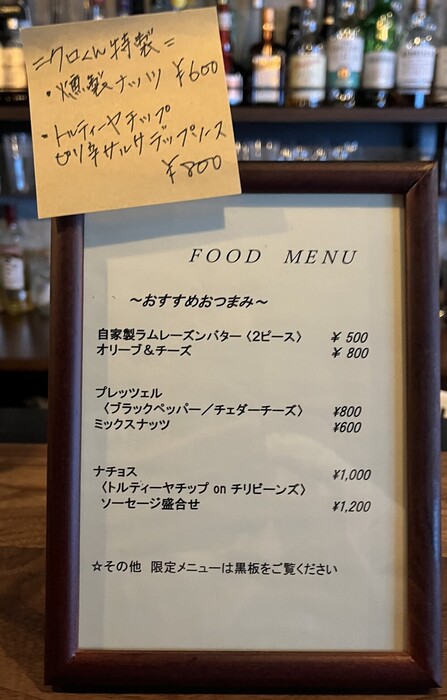 =クロくん特製=
・燻製ナッツ ¥600
・トルティーヤチップ
ピリ辛サルサデップソース
¥800
FOOD MENU
〜おすすめおつまみ〜
自家製ラムレーズンバター〈2ピース〉 ¥ 500
オリーブ＆チーズ ¥ 800
プレッツェル
〈ブラックペッパー／チェダーチーズ〉 ¥800
ミックスナッツ ¥600
ナチョス ¥1,000
〈トルティーヤチップ on チリビーンズ〉
ソーセージ盛合せ ¥1,200
☆その他 限定メニューは黒板をご覧ください